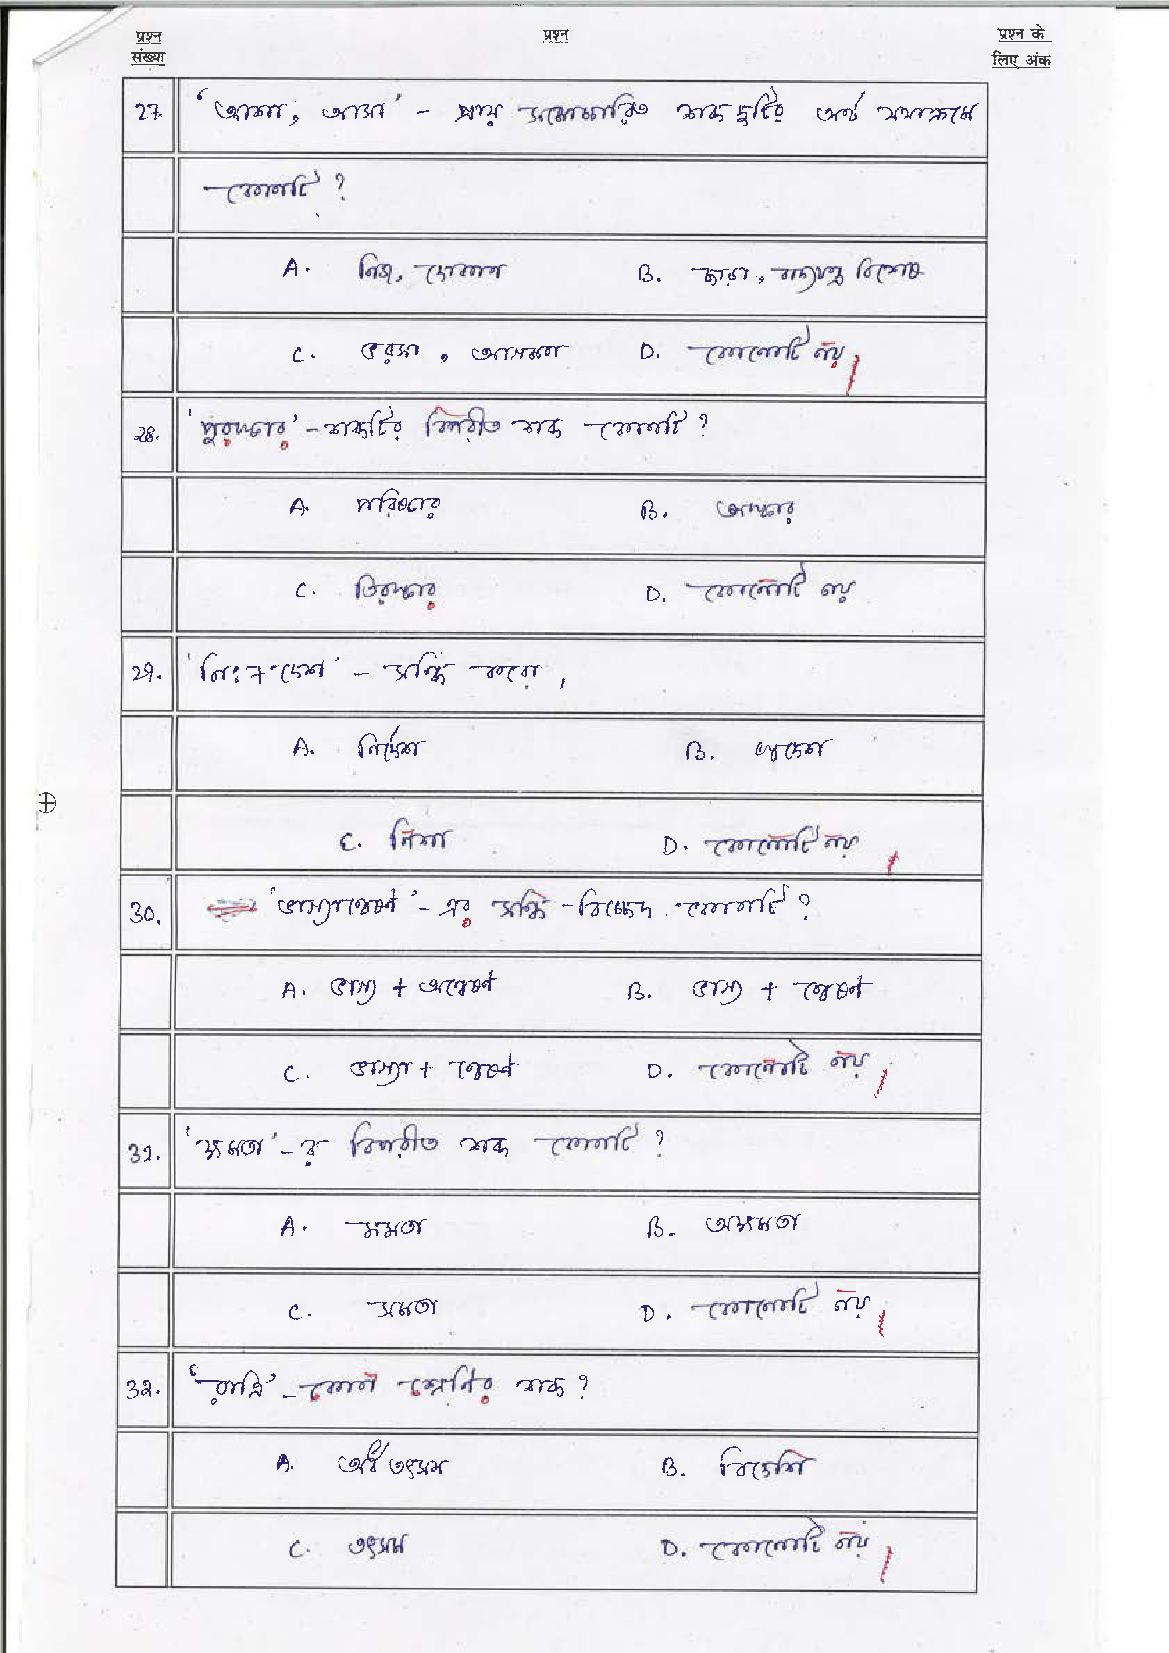 प्रश्न संख्या प्रश्न प्रश्न के लिए अंक
27. 'আশা, আসা' - প্রায় সমোচ্চারিত শব্দ দুটির অর্থ যথাক্রমে
কোনটি?
A. নিজ, B. বিশেষ
C. ভরসা, আগমন D. কোনোটি নয়
28. 'পুরস্কার' - শব্দটির বিপরীত শব্দ কোনটি?
A. পরিষ্কার B.
C. তিরস্কার D. কোনোটি নয়
29. 'নিঃ + দেশ' - সন্ধি করো,
A. নির্দেশ B.
C. নিশা D. কোনোটি নয়
30. 'ভাগ্যান্বেষণ' - এর সন্ধি-বিচ্ছেদ কোনটি?
A. ভাগ্য + অন্বেষণ B. ভাগ্য + ন্বেষণ
C. ভাগ্যা + ন্বেষণ D. কোনোটি নয়
31. 'ক্ষমতা' - র বিপরীত শব্দ কোনটি?
A. মমতা B. অক্ষমতা
C. সমতা D. কোনোটি নয়
32. 'রাত্রি' - কোন শ্রেনির শব্দ?
A. অর্ধ তৎসম B. বিদেশি
C. তৎসম D. কোনোটি নয়